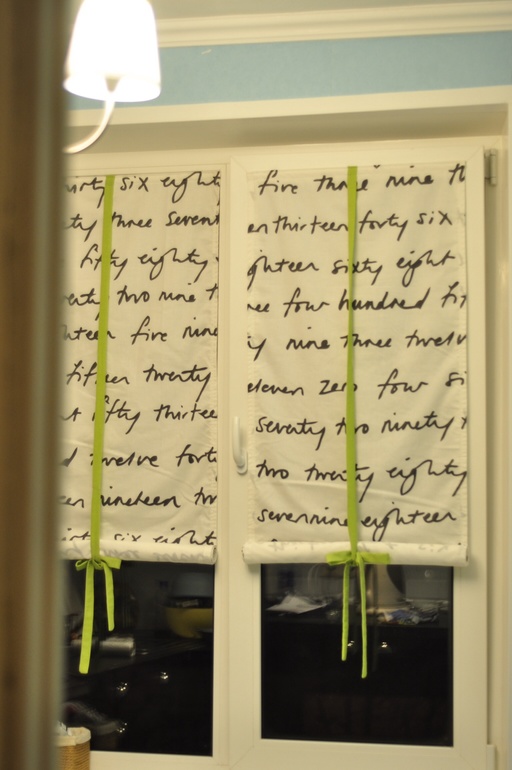 six eighty
three seven
fifty eighty
two nine
five nine
fifteen twenty
fifty thirtee
twelve fort
nineteen tw
six eighty
five three nine th
thirteen forty six
ghteen sixty eight
four hundred fif
nine three twelv
eleven zero four si
seventy two ninety
two twenty eighty
seven nine eighteen